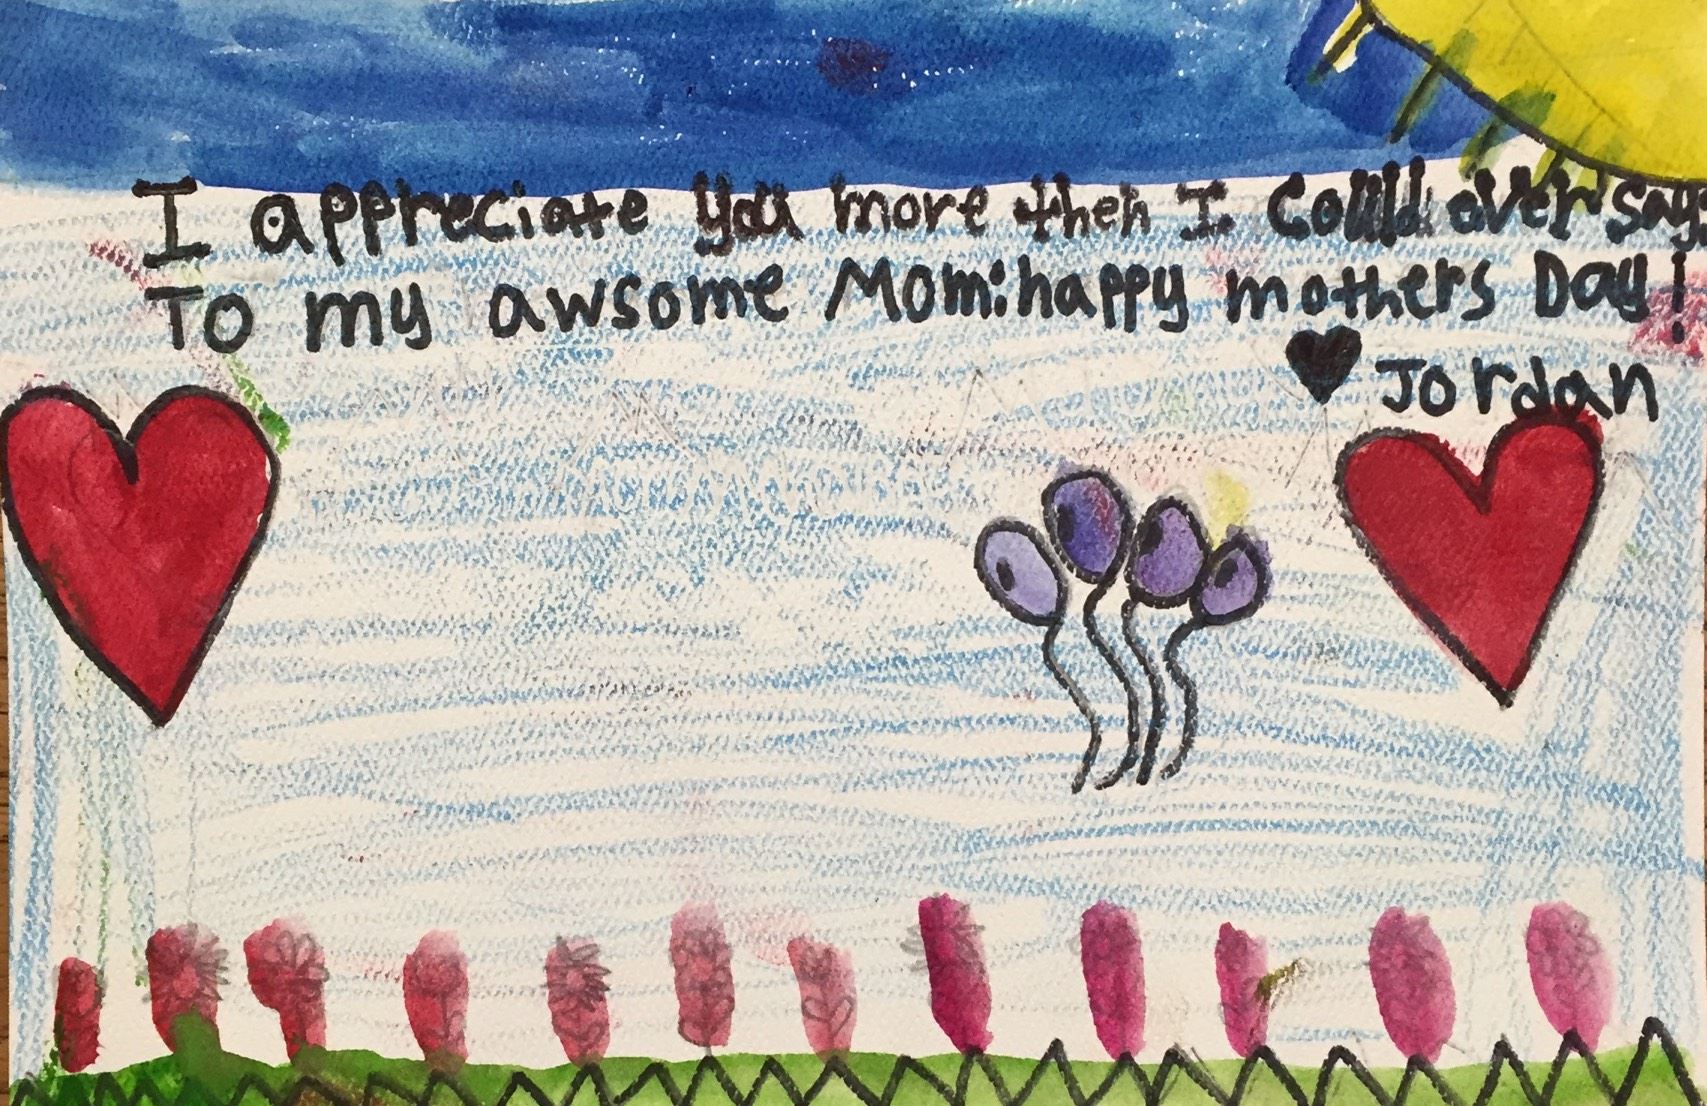 I appreciate you more then I Could ever say
To my awsome Mom: happy mothers Day!
Jordan